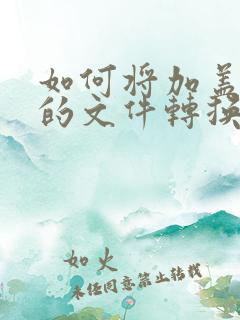 如何将加盖
的文件转换
如火
未经同意禁止转载